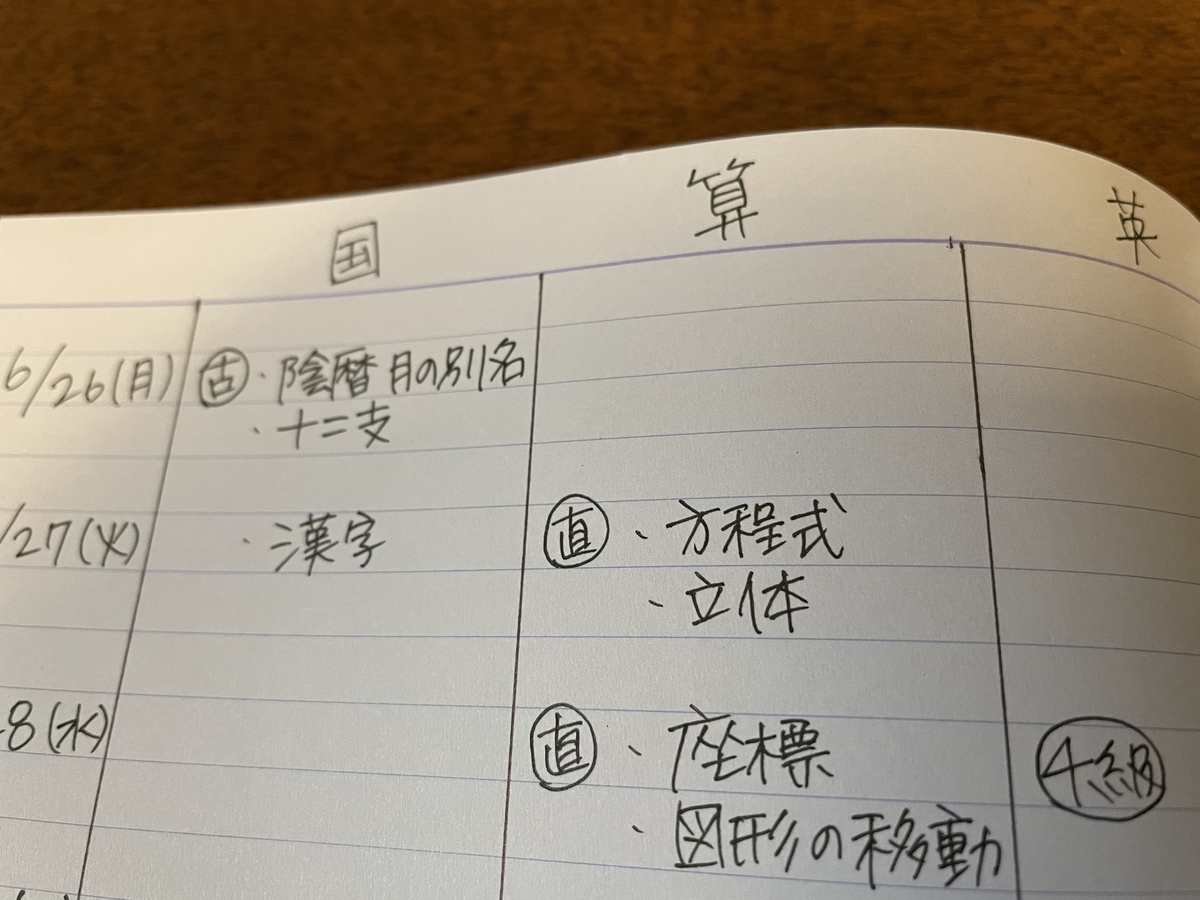 国 算 英
6/26(月) 古 ・陰暦月の別名
・十二支
/27(火) ・漢字 直 ・方程式
・立体
8(水) 直 ・座標 4級
・図形の移動